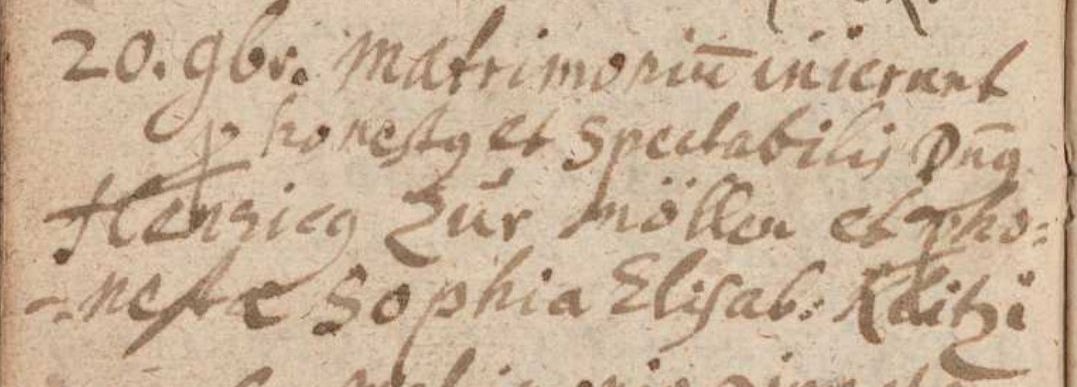 20. 9br. Matrimoniū inierunt
p honestq et Spectabilis Dnq̄
Hensicq Zür Möllen et pho-
-nestæ Sophia Elisab: Kaitzi